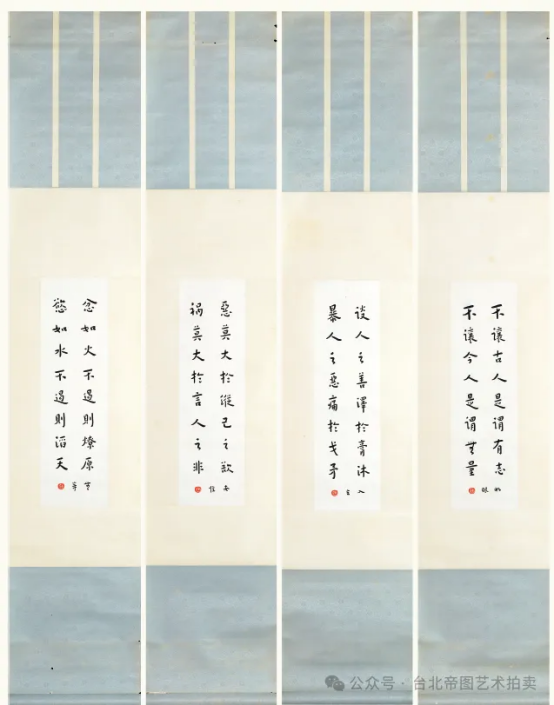 不讓古人是謂有志
不讓今人是謂無量
談人之善澤於膏沐
暴人之惡痛於戈矛
惡莫大於縱己之欲
禍莫大於言人之非
念如火不遏則燎原
慾如水不遏則滔天
公众号·台北帝图艺术拍卖